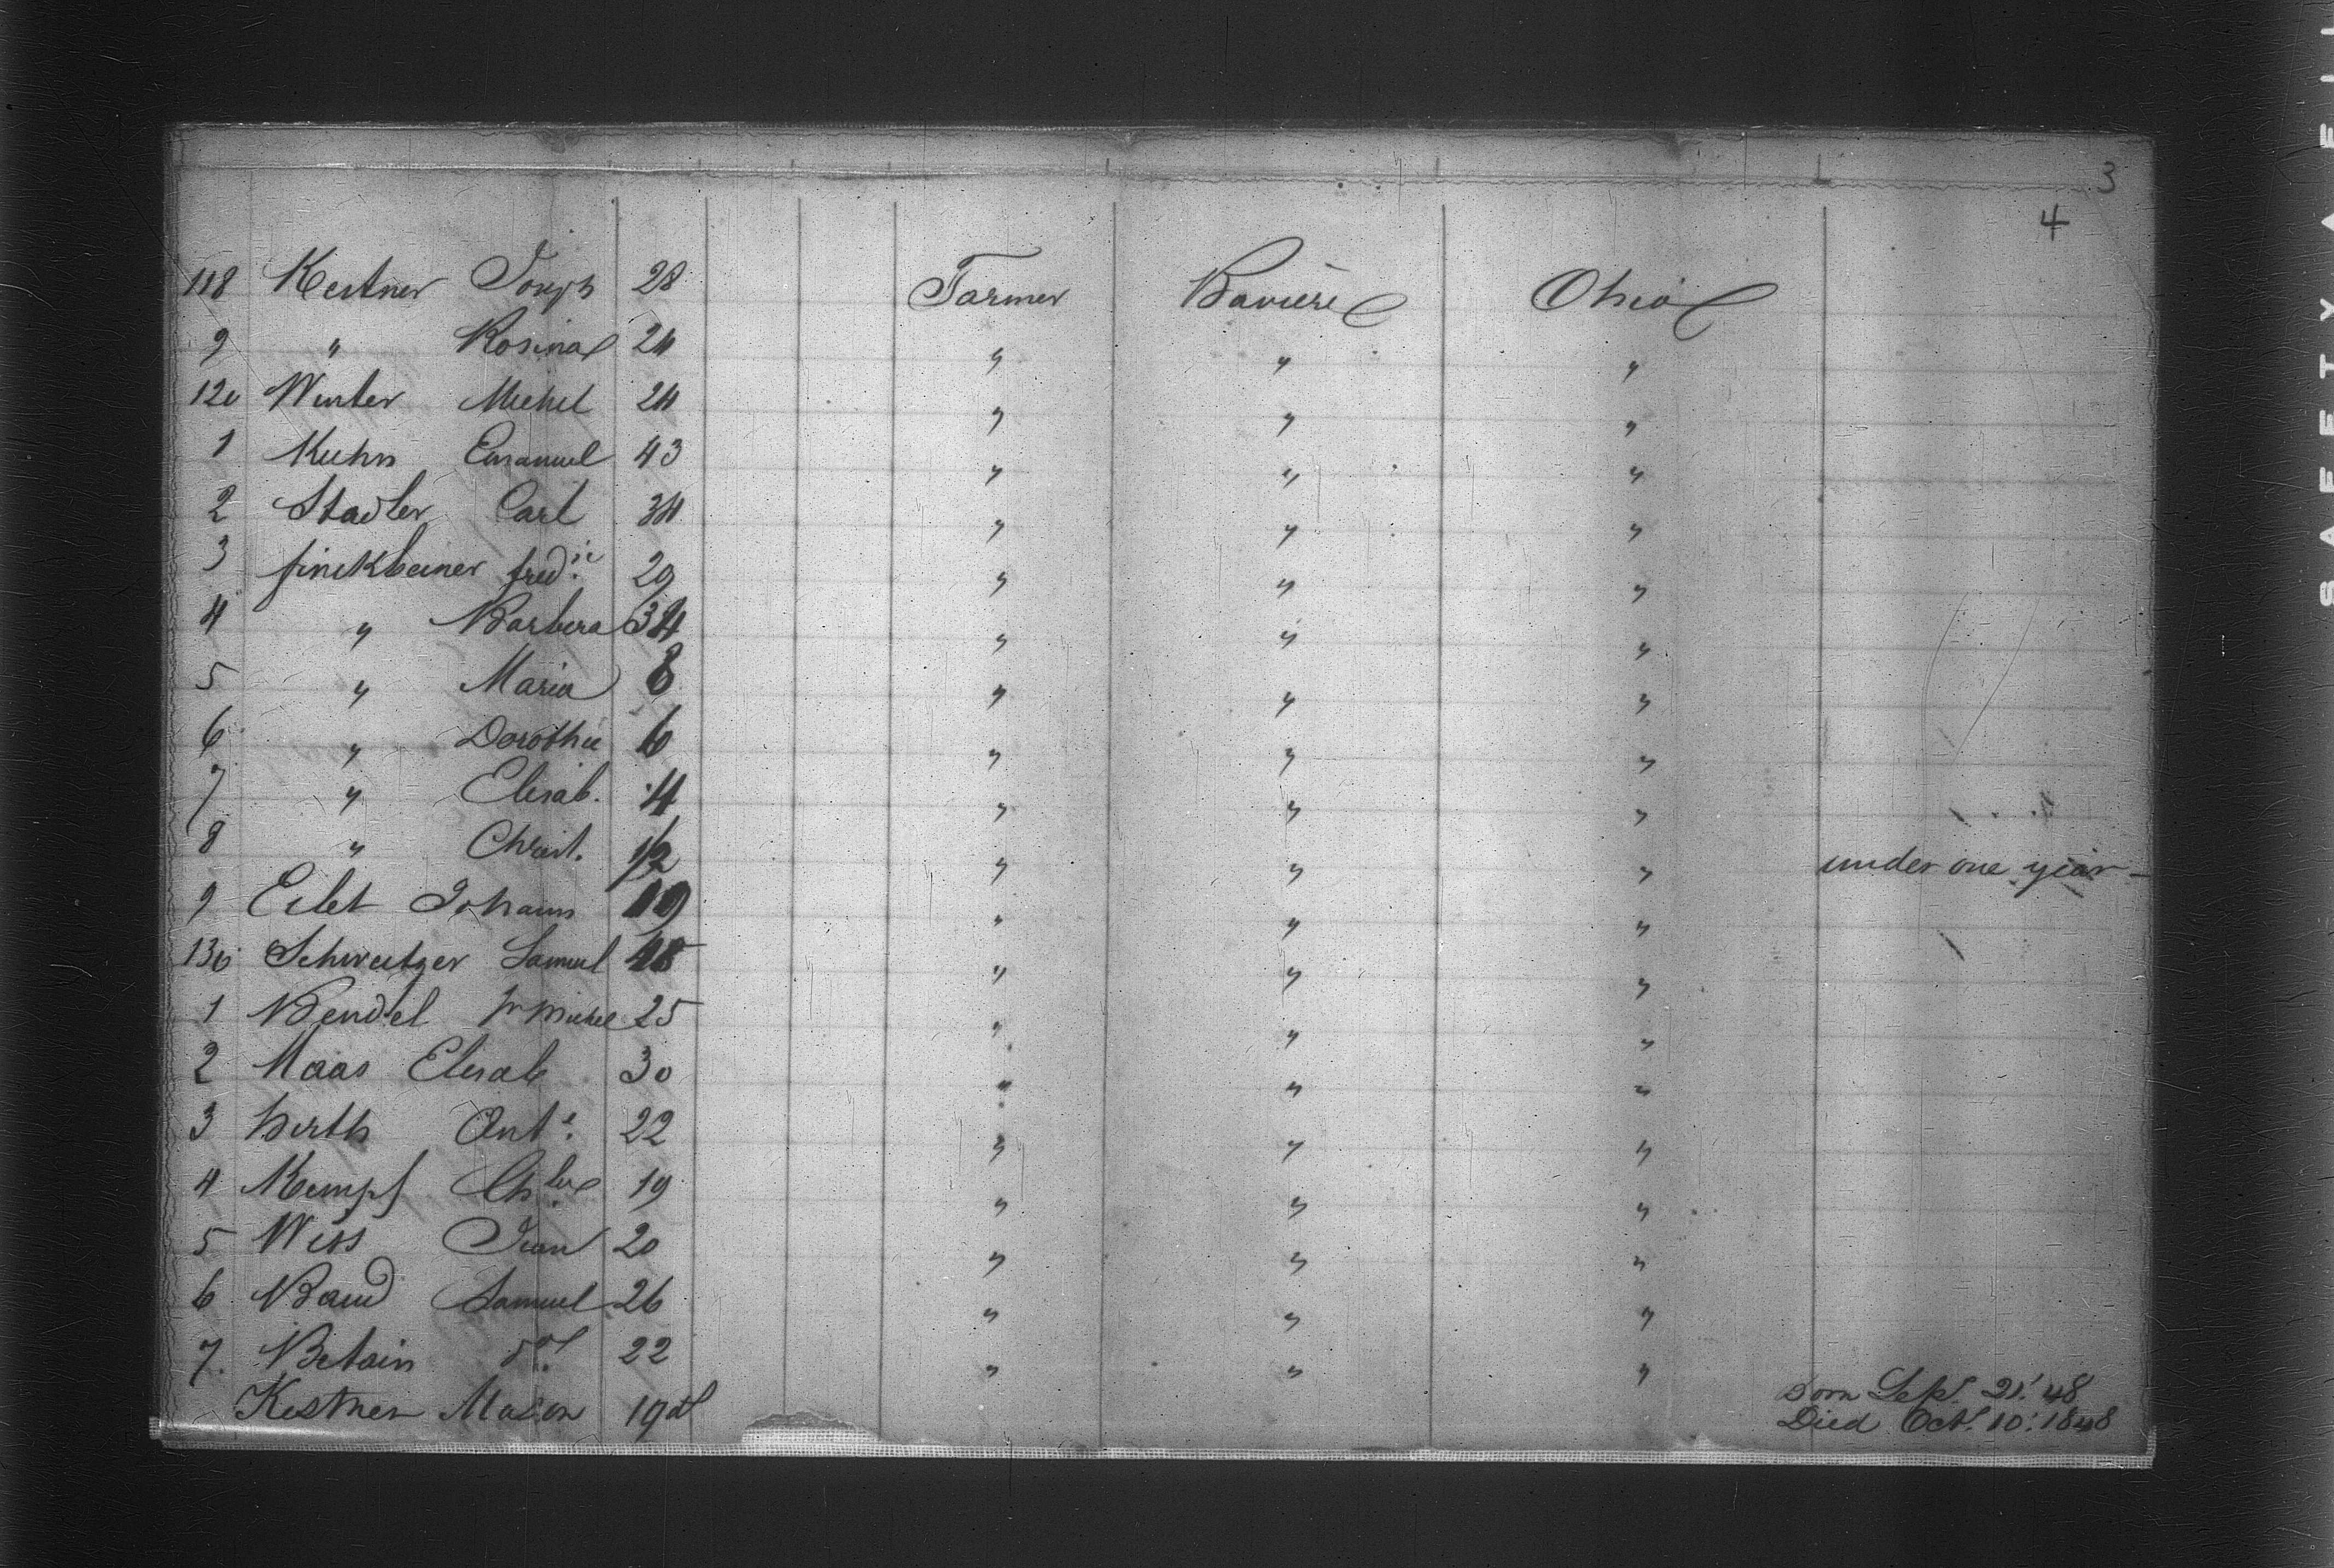 3
4
118 Kestner Joseph 28 Farmer Baviere Ohio
9 " Rosina 24 " " "
120 Winter Michel 24 " " "
1 Kuhn Emanuel 43 " " "
2 Stadler Carl 34 " " "
3 finckbeiner fred.ic 29 " " "
4 " Barbera 34 " " "
5 " Maria 8 " " "
6 " Dorothée 6 " " "
7 " Elisab. 4 " " "
8 " Christ. 1/2 " " " under one year
9 Eilet Johann 19 " " "
130 Schweitzer Samuel 45 " " "
1 Bendel Michel 25 " " "
2 Maas Elisab 30 " " "
3 hirth Ant.e 22 " " "
4 Kempf 19 " " "
5 Wiss Jean 20 " " "
6 Baud Samuel 26 " " "
7. Betain 22 " " "
Kestner Mason 19 d born Sept. 21. 48
Died Oct. 10. 1848
SAFETY